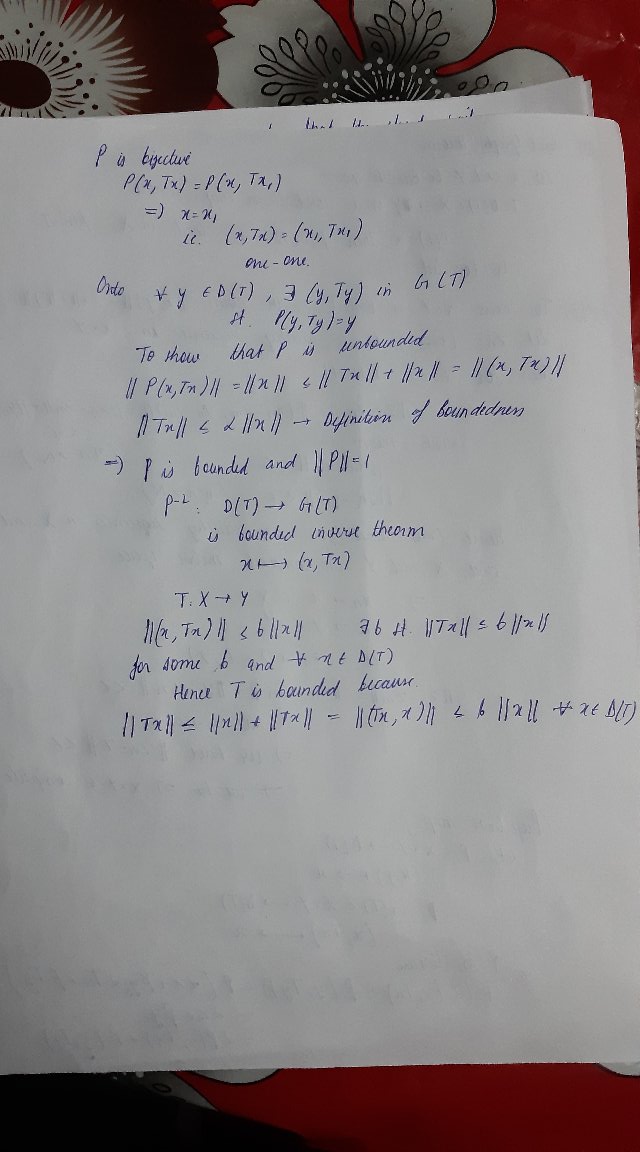 that the
P is bijective
P(x, Tx) = P(x, Tx₁)
=) x = x₁
i.e. (x, Tx) = (x₁, Tx₁)
one-one.
Onto ∀ y ∈ D(T), ∃ (y, Ty) in G(T)
st. P(y, Ty) = y
To show that P is unbounded
|| P(x, Tx) || = ||x|| ≤ || Tx || + ||x|| = || (x, Tx) ||
|| Tx || ≤ α ||x|| → Definition of Boundedness
=) P is bounded and ||P|| = 1
P⁻¹ : D(T) → G(T)
is bounded inverse theorm
x ↦ (x, Tx)
T: X → Y
||(x, Tx)|| ≤ b ||x|| ∃ b st. ||Tx|| ≤ b ||x||
for some b and ∀ x ∈ D(T)
Hence T is bounded because.
|| Tx || ≤ ||x|| + ||Tx|| = || (Tx, x) || ≤ b ||x|| ∀ x ∈ D(T)